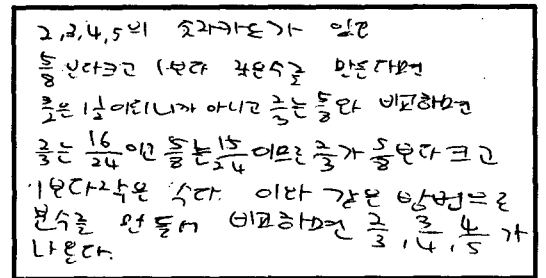 2,3,4,5의 숫자카드가 있고
5/8 보다크고 1보다 작은수를 만든다면
3/2은 1 1/2이되니까 아니고 2/3는 5/8와 비교하면
2/3는 16/24 이고 5/8는 15/24 이므로 2/3가 5/8보다 크고
1보다작은 수다. 이와 같은 방법으로
분수를 만들어 비교하면 2/3, 3/4, 4/5 가
나온다.